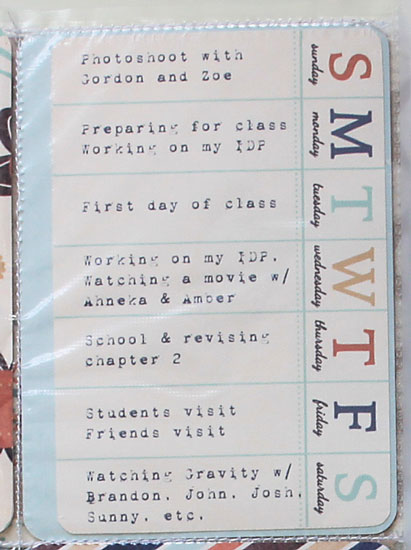 Photoshoot with
Gordon and Zoe
S
sunday
Preparing for class
Working on my IDP
M
monday
First day of class
T
tuesday
Working on my IDP.
Watching a movie w/
Ahneka & Amber
W
wednesday
School & revising
chapter 2
T
thursday
Students visit
Friends visit
F
friday
Watching Gravity w/
Brandon, John, Josh,
Sunny, etc.
S
saturday